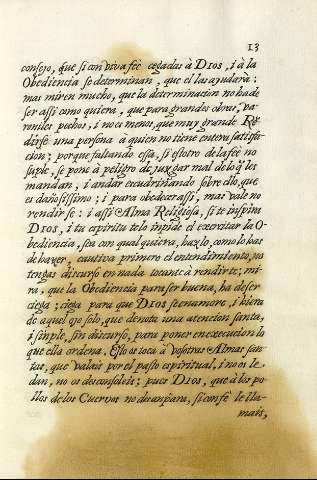 13
consejo, que si con viva feè cegadas à DIOS, i à la
Obediencia se determinan, que el las ajudarà:
mas miren mucho, que la determinacion no ha de
ser assi como quiera, que para grandes obras, va-
roniles pechos, i no es menos, que muy grande Re-
dirse una persona à quien no tiene entera satisfa-
cion; porque faltando essa, si esto de la feè no
suple, se pone à peligro de juzgar mal de lo q̃ les
mandan, i andar escudriñando sobre ello, que
es dañosissimo; i para obedecer assi, mas vale no
rendirse: i assi Alma Religiosa, si te inspira
DIOS, i tu espiritu te lo impide el exercitar la O-
bediencia, sea con qual quiera, hazlo, como lo has
de hazer, cautiva primero el entendimiento, no
tengas discurso en nada tocante à rendirte; mi-
ra, que la Obediencia para ser buena, ha de ser
ciega; ciega para que DIOS se enamore, i hiera
de aquel ojo solo, que denota una atencion santa,
i simple, sin discurso, para poner en execucion lo
que ella ordena. Esto os toca à vosotras Almas san-
tas, que valais por el pasto espiritual, i no os le
dan, no os desconsoleis; pues DIOS, que à los po-
llos de los Cuervos no desampara, si con feè le lla-
mais,